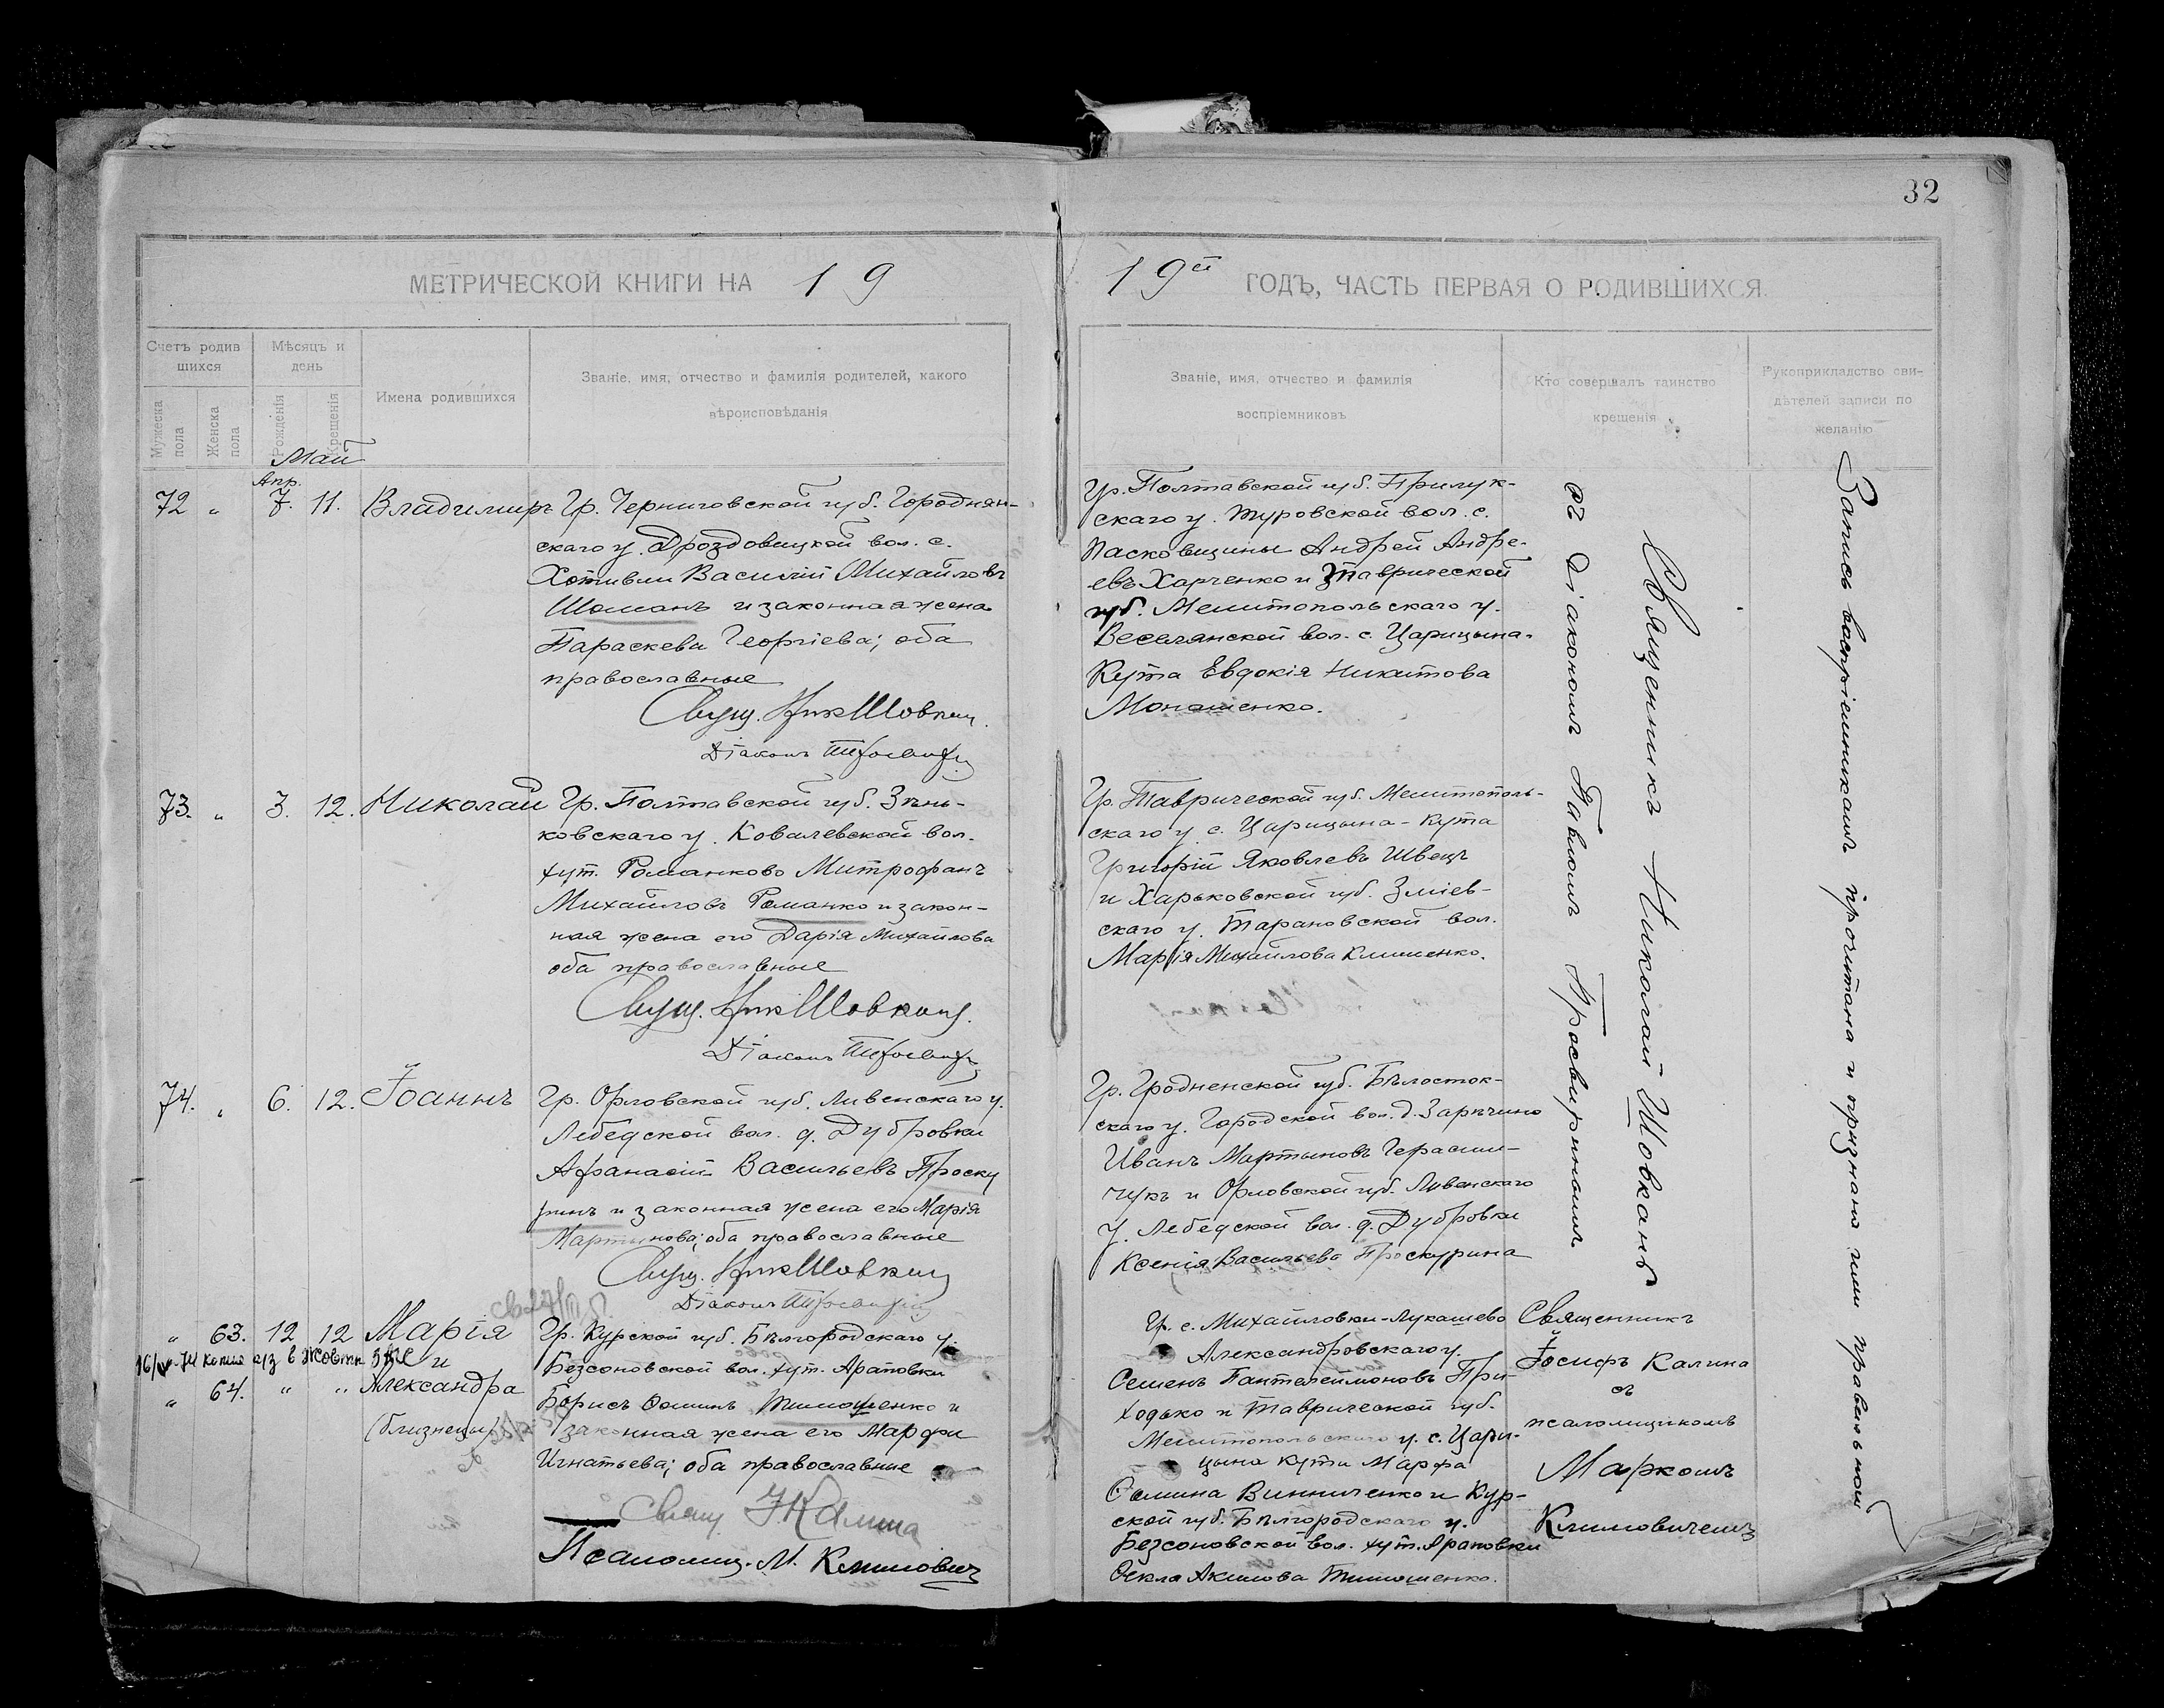 32
МЕТРИЧЕСКОЙ КНИГИ НА 19
19й ГОДЪ, ЧАСТЬ ПЕРВАЯ О РОДИВШИХСЯ.
Счетъ родив
шихся
Мужеска
пола
Женска
пола
Мѣсяцъ и
день
Рожденія
Крещенія
Имена родившихся
Званіе, имя, отчество и фамилія родителей, какого
вѣроисповѣданія
Званіе, имя, отчество и фамилія
воспріемниковъ
Кто совершалъ таинство
крещенія
Рукоприкладство сви-
дѣтелей записи по
желанію
Май
Апр.
72 " 7. 11. Владимиръ
Гр. Черниговской губ. Городнян-
скаго у. Дроздовицкой вол. с.
Хотивли Василій Михайловъ
Шоманъ и законная жена
Параскева Георгіева; оба
православные
Свущ. Ник Шовкан.
Діаконъ
Гр. Полтавской губ. Прилук-
скаго у. Туровской вол. с.
Пасковщины Андрей Андре-
евъ Харченко и Таврической
губ. Мелитопольскаго у.
Веселянской вол. с. Царицына-
Кута Евдокія Никитова
Монашенко.
73. " 3. 12. Николай
Гр. Полтавской губ. Зѣнь-
ковскаго у. Ковалевской вол.
хут. Романково Митрофанъ
Михайловъ Романко и закон-
ная жена его Дарія Михайлова
оба православные
Свущ. Ник Шовкан.
Діаконъ
Гр. Таврической губ. Мелитополь-
скаго у. с. Царицына-Кута
Григорій Яковлевъ Швецъ
и Харьковской губ. Зміев-
скаго у. Тарановской вол.
Марія Михайлова Клименко.
74. " 6. 12. Іоаннъ
Гр. Орловской губ. Ливенскаго у.
Лебедской вол. д. Дубровки
Афанасій Васильевъ Проску
ринъ и законная жена его Марія
Мартынова; оба православные
Свущ. Ник Шовкан
Діаконъ
Гр. Гродненской губ. Бѣлосток-
скаго у. Городской вол. д. Зарѣчино
Иванъ Мартыновъ Герасим-
чукъ и Орловской губ. Ливенскаго
у. Лебедской вол. д. Дубровки
Ксенія Васильева Проскурина
Священникъ Николай Шовканъ
съ діакономъ Павломъ Просвирнинымъ
Запись воспріемникамъ прочитана и признана ими правильной
" 63. 12 12 Марія
и
" 64. " " Александра
(близнецы)
Гр. Курской губ. Бѣлгородскаго у.
Безсоновской вол. хут. Араповки
Борисъ Фоминъ Тимошенко и
законная жена его Марфа
Игнатьева; оба православные
Свящ. І Калина
Псаломщ. М. Климовичъ
Гр. с. Михайловки-Лукашево
Александровскаго у.
Семенъ Пантелеймоновъ При-
ходько и Таврической губ.
Мелитопольскаго у. с. Цари-
цына Кута Марфа
Фомина Винниченко и Кур-
ской губ. Бѣлгородскаго у.
Безсоновской вол. хут. Араповки
Фекла Акимова Тимошенко.
Священникъ
Іосифъ Калина
съ
псаломщикомъ
Маркомъ
Климовичемъ